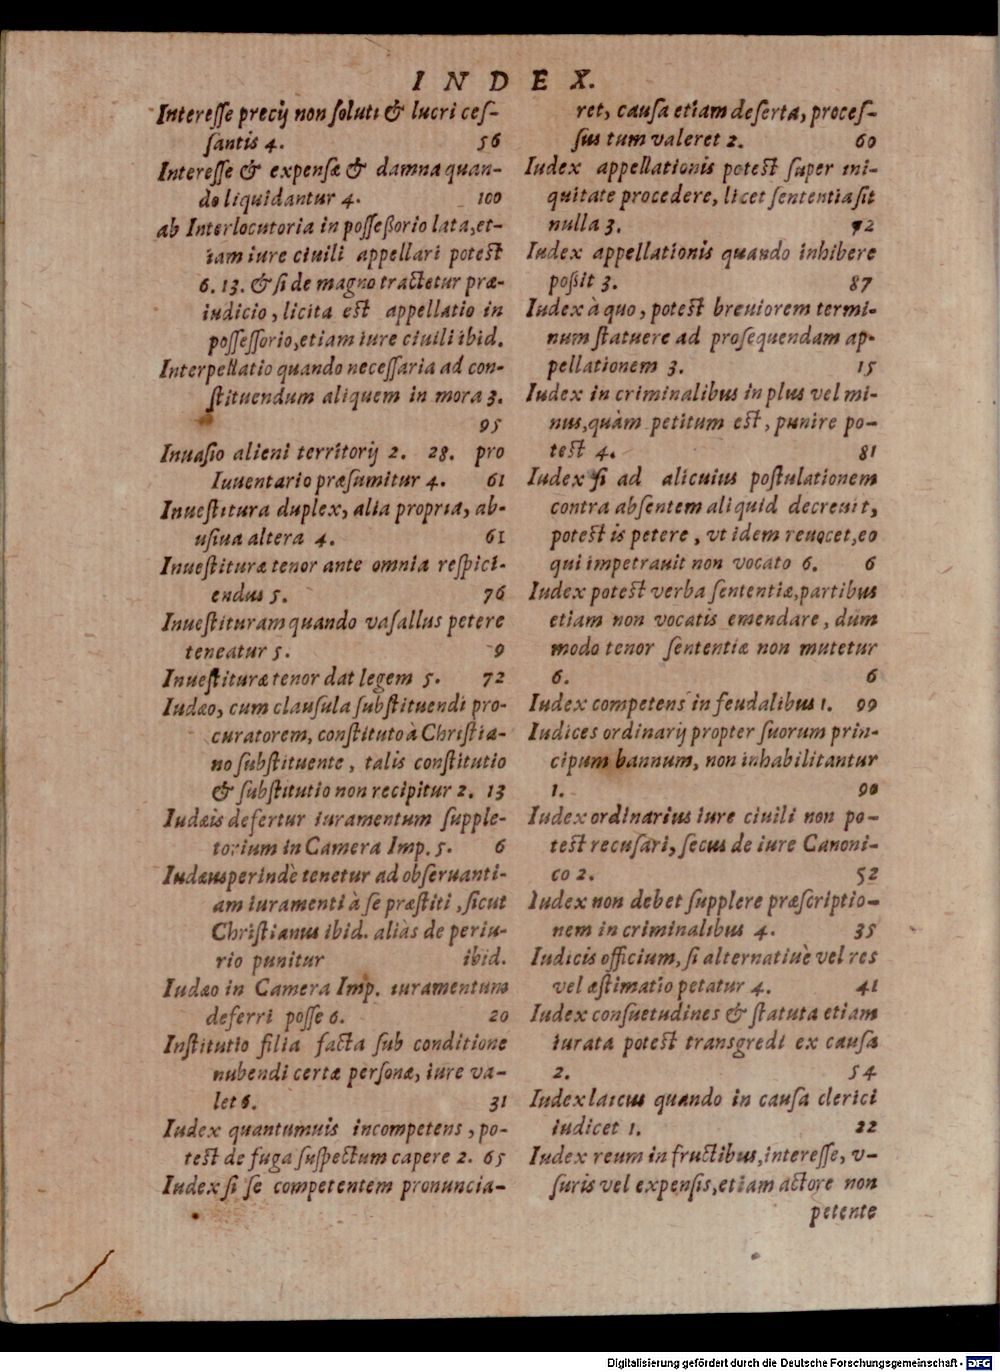 INDEX.
Interesse precij non soluti & lucri ces-
santis 4. 56
Interesse & expensæ & damna quan-
do liquidantur 4. 100
ab Interlocutoria in posseßorio lata, et-
iam iure ciuili appellari potest
6. 13. & si de magno tractetur præ-
iudicio, licita est appellatio in
possessorio, etiam iure ciuili ibid.
Interpellatio quando necessaria ad con-
stituendum aliquem in mora 3.
95
Inuasio alieni territorij 2. 28. pro
Iuuentario præsumitur 4. 61
Inuestitura duplex, alia propria, ab-
usiua altera 4. 61
Inuestituræ tenor ante omnia respici-
endus 5. 76
Inuestituram quando vasallus petere
teneatur 5. 9
Inuestituræ tenor dat legem 5. 72
Iudæo, cum clausula substituendi pro-
curatorem, constituto à Christia-
no substituente, talis constitutio
& substitutio non recipitur 2. 13
Iudæis defertur iuramentum supple-
torium in Camera Imp. 5. 6
Iudæus perindè tenetur ad obseruanti-
am iuramenti à se præstiti, sicut
Christianus ibid. aliàs de periu-
rio punitur ibid.
Iudæo in Camera Imp. iuramentum
deferri posse 6. 20
Institutio filia facta sub conditione
nubendi certæ personæ, iure va-
let 6. 31
Iudex quantumuis incompetens, po-
test de fuga suspectum capere 2. 65
Iudex si se competentem pronuncia-
ret, causa etiam deserta, proces-
sus tum valeret 2. 60
Iudex appellationis potest super ini-
quitate procedere, licet sententia sit
nulla 3. 72
Iudex appellationis quando inhibere
poßit 3. 87
Iudex à quo, potest breuiorem termi-
num statuere ad prosequendam ap-
pellationem 3. 15
Iudex in criminalibus in plus vel mi-
nus, quàm petitum est, punire po-
test 4. 81
Iudex si ad alicuius postulationem
contra absentem aliquid decreuit,
potest is petere, vt idem reuocet, eo
qui impetrauit non vocato 6. 6
Iudex potest verba sententiæ, partibus
etiam non vocatis emendare, dum
modo tenor sententiæ non mutetur
6. 6
Iudex competens in feudalibus 1. 99
Iudices ordinarij propter suorum prin-
cipum bannum, non inhabilitantur
1. 90
Iudex ordinarius iure ciuili non po-
test recusari, secus de iure Canoni-
co 2. 52
Iudex non debet supplere præscriptio-
nem in criminalibus 4. 35
Iudicis officium, si alternatiuè vel res
vel æstimatio petatur 4. 41
Iudex consuetudines & statuta etiam
iurata potest transgredi ex causa
2. 54
Iudex laicus quando in causa clerici
iudicet 1. 22
Iudex reum in fructibus, interesse, v-
suris vel expensis, etiam actore non
petente
Digitalisierung gefördert durch die Deutsche Forschungsgemeinschaft - DFG